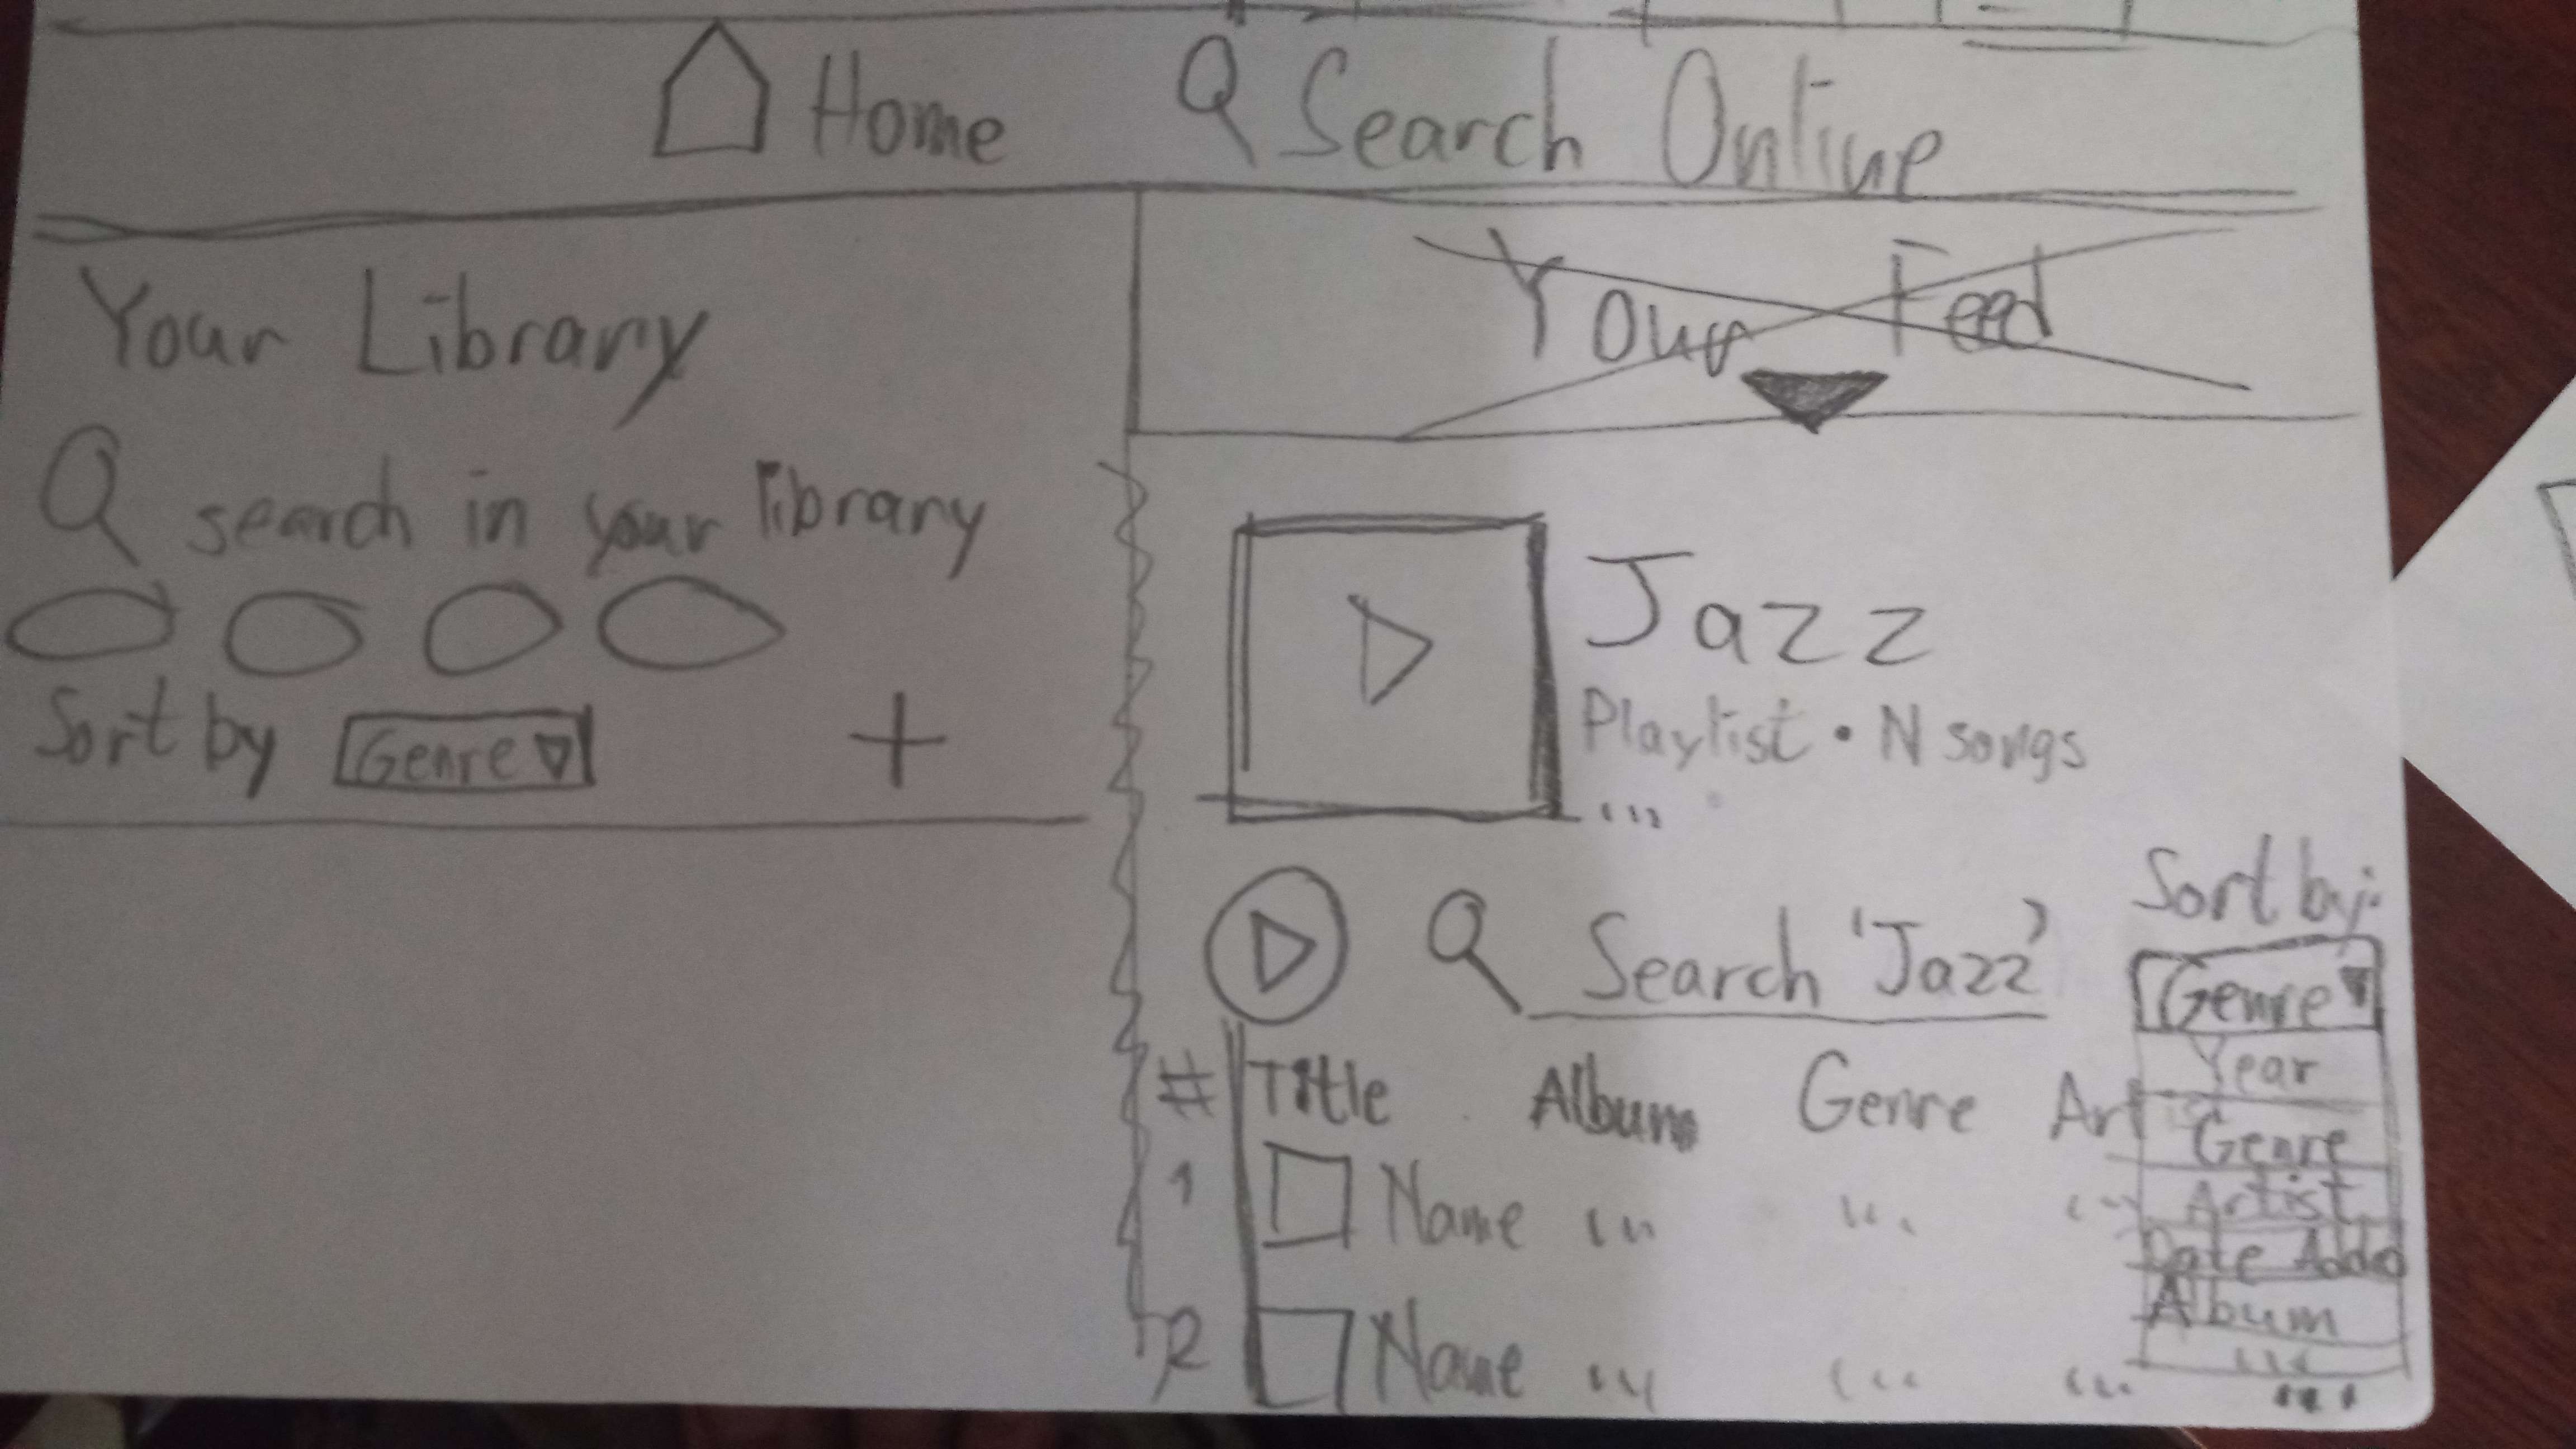 Home
Search Online
Your Library
search in your library
Sort by Genre
+
Your Feed
Jazz
Playlist • N songs
...
Search 'Jazz'
Sort by:
Genre
Year
Genre
Artist
Date Added
Album
...
...
# Title Album Genre Art
1 Name ... ... ...
2 Name ... ... ...